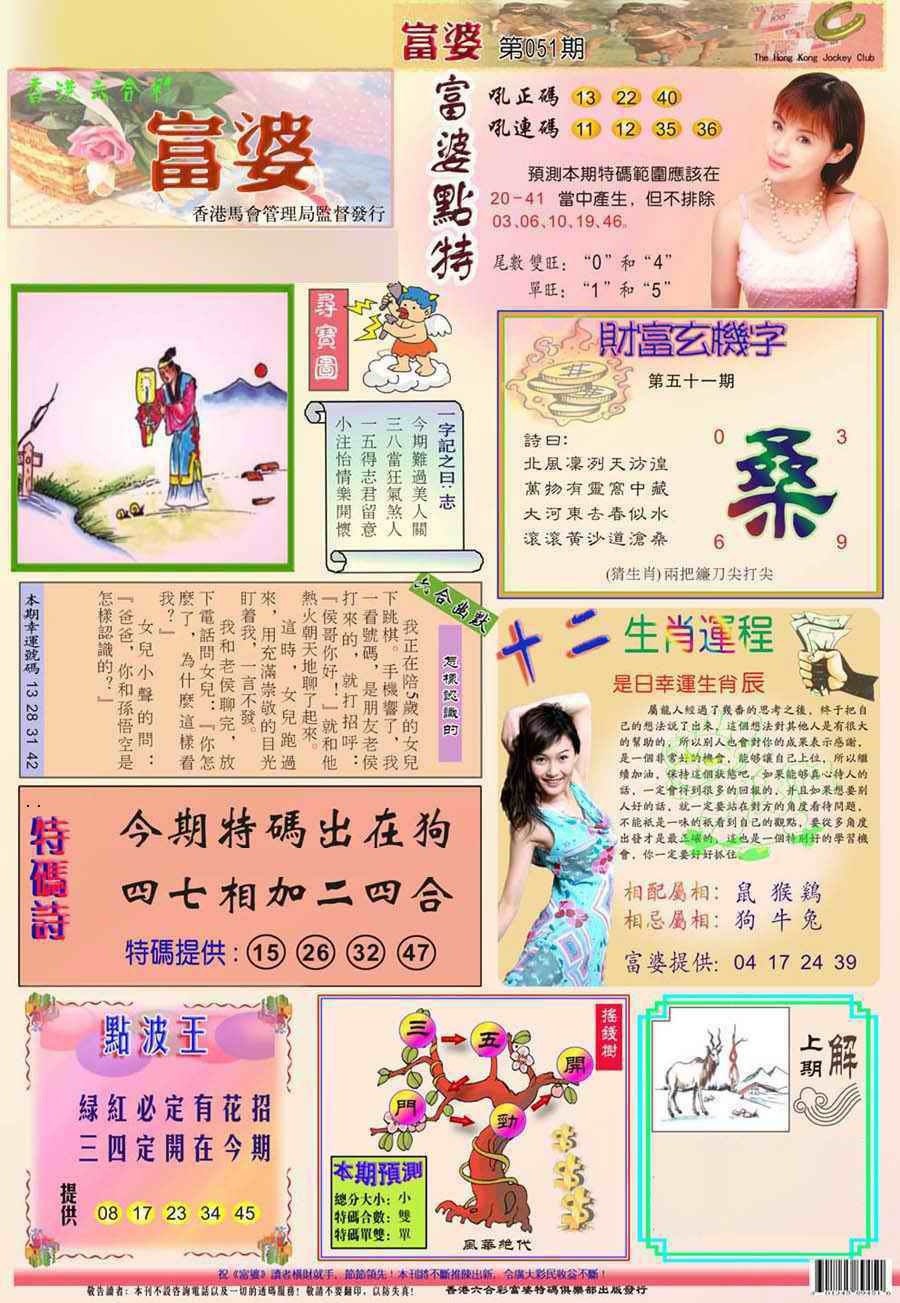 富婆 第051期
The Hong Kong Jockey Club
香港六合彩
富婆
香港馬會管理局監督發行
富婆點特
吼正碼 13 22 40
吼連碼 11 12 35 36
預測本期特碼範圍應該在
20-41 當中產生，但不排除
03、06、10、19、46。
尾數 雙旺：“0”和“4”
單旺：“1”和“5”
尋寶圖
一字記之曰：志
今期難過美人關
三八當狂氣煞人
一五得志君留意
小注怡情樂開懷
財富玄機字
第五十一期
詩曰：
北風凜冽天涝徨
萬物有靈窩中藏
大河東去春似水
滾滾黃沙道滄桑
0 3
桑
6 9
(猜生肖)兩把鐮刀尖打尖
本期幸運號碼 13 28 31 42
六合幽默
怎樣認識的
我正在陪5歲的女兒
下跳棋。手機響了，我
一看號碼，是朋友老侯
打來的，就打招呼：
『侯哥你好！』就和他
熱火朝天地聊了起來。
這時，女兒跑過
來，用充滿崇敬的目光
盯着我，一言不發。
我和老侯聊完，放
下電話問女兒：『你怎
麼了，為什麼這樣看
我？』
女兒小聲的問：
『爸爸，你和孫悟空是
怎樣認識的？』
十二生肖運程
是日幸運生肖辰
屬龍人經過了幾番的思考之後，終于把自
己的想法說了出來，這個想法對其他人是有很大
的幫助的，所以別人也會對你的成果表示感謝，
是一個非常好的機會，能够讓自己上位，所以繼
續加油，保持這個狀態吧，如果能够真心待人的
話，一定會得到很多的回報的，并且如果想要別
人好的話，就一定要站在對方的角度看待問題，
不能祇是一味的祇看到自己的觀點，要從多角度
出發才是最正確的，這也是一個特別好的學習機
會，你一定要好好抓住。
相配屬相：鼠 猴 鷄
相忌屬相：狗 牛 兔
富婆提供：04 17 24 39
特碼詩
今期特碼出在狗
四七相加二四合
特碼提供：15 26 32 47
點波王
綠紅必定有花招
三四定開在今期
提供 08 17 23 34 45
搖錢樹
三 五 開
門 勁
本期預測
總分大小：小
特碼合數：雙
特碼單雙：單
風華絕代
上期解
祝《富婆》讀者橫財就手，節節領先！本刊將不斷推陳出新，令廣大彩民收益不斷！
敬告讀者：本刊不設咨詢電話以及一切的透碼服務！敬請不要翻印，以防失真！
香港六合彩富婆特碼俱樂部出版發行